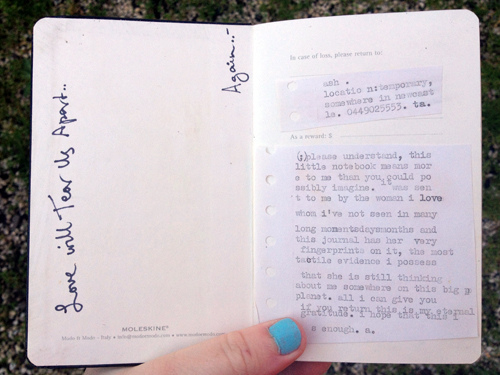 Love will Tear Us Apart..
Again..-
MOLESKINE®
Made & Made - Italy • info@moleskine.com •
In case of loss, please return to:
ash .
locatio n:temporary,
somewhere in newcast
le. 0449025553. ta.
As a reward: $
(;)please understand, this
little notebook means mor
e to me than you could po
ssibly imagine. it was sen
t to me by the woman i love
whom i've not seen in many
long momentsdaysmonths and
this journal has her very
fingerprints on it, the most
tactile evidence i possess
that she is still thinking
about me somewhere on this big p
planet. all i can give you
if you return this is my eternal
gratitude. i hope that this i
s enough. a.